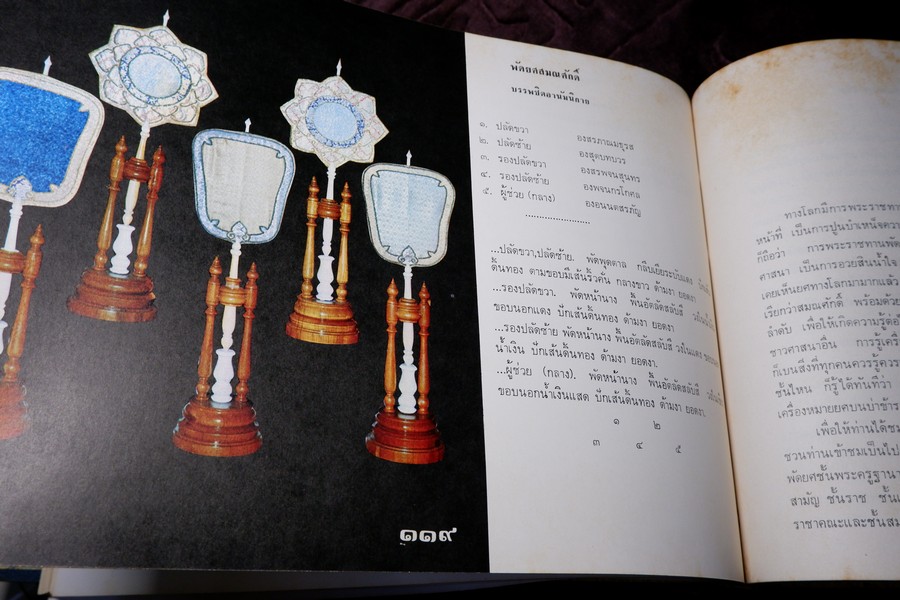 พัดยศสมณศักดิ์
บรรพชิตอานัมนิกาย
๑. ปลัดขวา องสรภาณมธุรส
๒. ปลัดซ้าย องสุตบทบวร
๓. รองปลัดขวา องสรพจนสุนทร
๔. รองปลัดซ้าย องพจนกรโกศล
๕. ผู้ช่วย (กลาง) องอนนตสรภัญ
......................
...ปลัดขวา,ปลัดซ้าย. พัดพุดตาล กลีบเอียระบับแดง
ดิ้นทอง ตามขอบมีเส้นริ้วคั่น กลางขาว ด้ามงา ยอดงา
...รองปลัดขวา. พัดหน้านาง พื้นอัตลัดสลับสี
ขอบนอกแดง ปักเส้นดิ้นทอง ด้ามงา ยอดงา
...รองปลัดซ้าย พัดหน้านาง พื้นอัตลัดสลับสี วงในแดง
น้ำเงิน ปักเส้นดิ้นทอง ด้ามงา ยอดงา.
...ผู้ช่วย (กลาง). พัดหน้านาง พื้นอัตลัดสลับสี
ขอบนอกน้ำเงินแสด ปักเส้นดิ้นทอง ด้ามงา ยอดงา.
๑ ๒
๓ ๔ ๕
๑๑๙
ทางโลกมีการพระราชทา
หน้าที่ เป็นการปูนบำเหน็จควา
ก็ถือว่า การพระราชทานพัด
ศาสนา เป็นการอวยสินน้ำใจ
เคยเห็นยศทางโลกมามากแล้ว
เรียกว่าสมณศักดิ์ พร้อมด้วย
ลำดับ เพื่อให้เกิดความรู้ต่อ
ชาวศาสนาอื่น การรู้เครื่
ก็เป็นสิ่งที่ทุกคนควรรู้ควร
ชั้นไหน ก็รู้ได้ทันทีว่า
เครื่องหมายยศบนบ่าข้าร
เพื่อให้ท่านได้ชม
ชวนท่านเข้าชมเป็นไป
พัดยศชั้นพระครูฐานา
สามัญ ชั้นราช ชั้นเ
ราชาคณะและชั้นสม